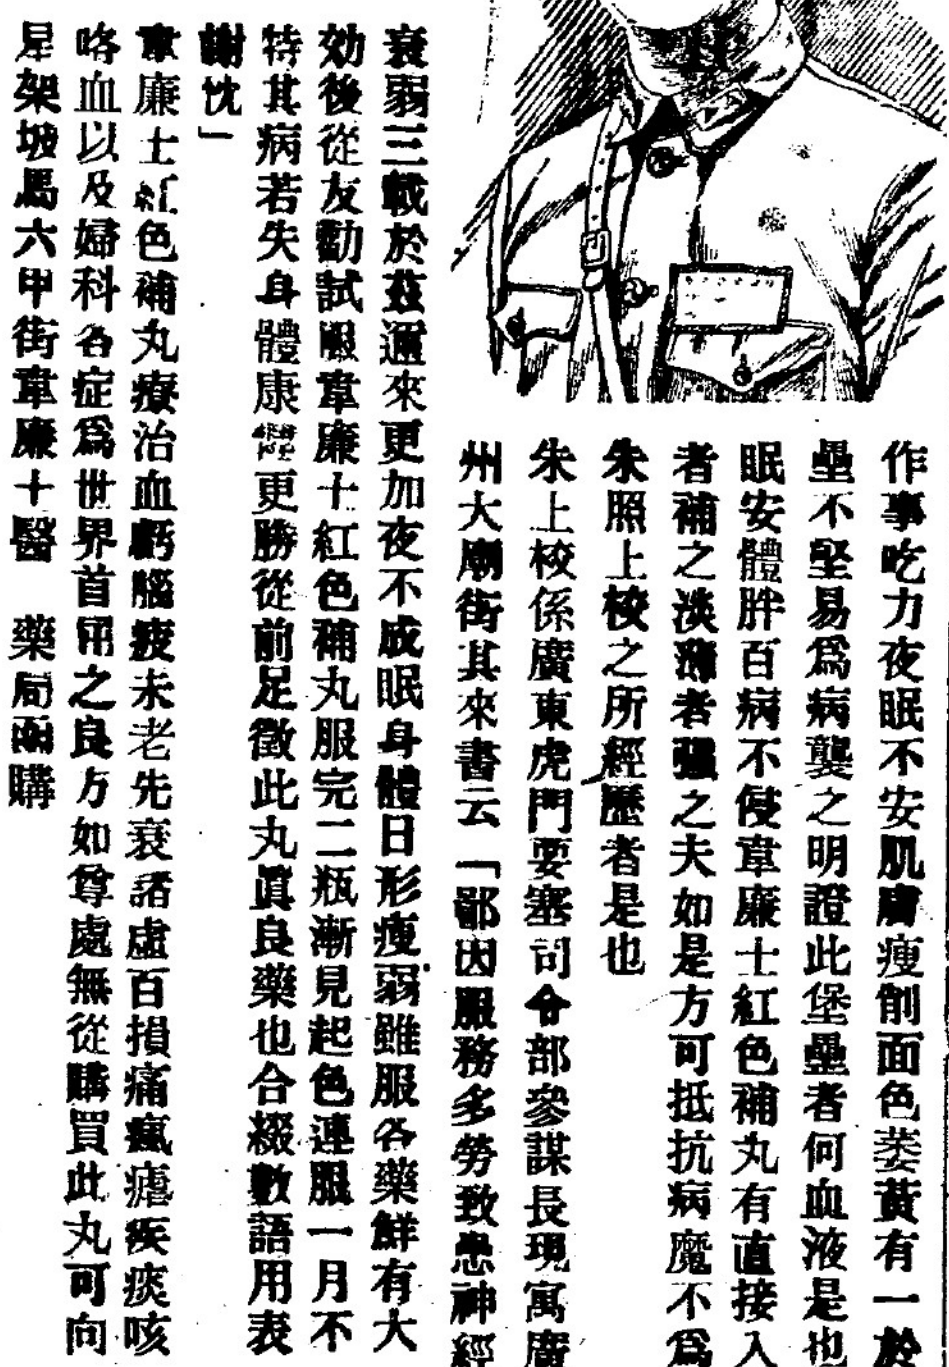 作事吃力夜眠不安肌膚瘦削面色萎黃有一於
壘不堅易爲病襲之明證此堡壘者何血液是也
眠安體胖百病不侵韋廉士紅色補丸有直接入
者補之淡薄者强之夫如是方可抵抗病魔不爲
朱照上校之所經歷者是也
朱上校係廣東虎門要塞司令部參謀長現寓廣
州大廟街其來書云「鄙因服務多勞致患神經
衰弱三載於茲邇來更加夜不成眠身體日形瘦弱雖服各藥鮮有大
効後從友勸試服韋廉士紅色補丸服完二瓶漸見起色連服一月不
特其病若失身體康健更勝從前足徵此丸眞良藥也合綴數語用表
謝忱」
韋廉士紅色補丸療治血虧腦疲未老先衰諸虛百損痛瘋瘧疾痰咳
咯血以及婦科各症爲世界首用之良方如尊處無從購買此丸可向
星架坡馬六甲街韋廉士醫 藥局函購